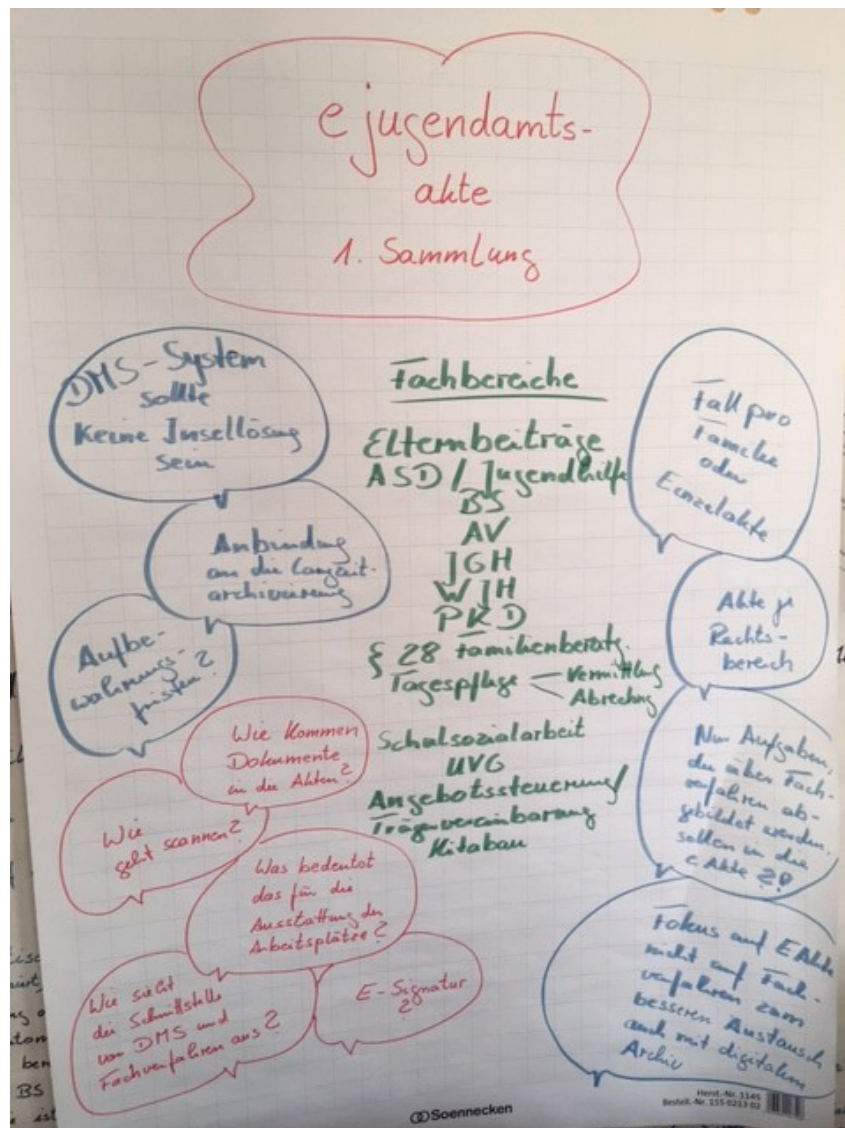 e jugendamts-
akte
1. Sammlung
DMS-System
sollte
Keine Insellösung
sein
Anbindung
an die Langzeit-
archivierung
Aufbe-
wahrungs-
fristen?
Wie kommen
Dokumente
in die Akten?
Wie
geht scannen?
Was bedeutet
das für die
Ausstattung der
Arbeitsplätze?
Wie sieht
die Schnittstelle
von DMS und
Fachverfahren aus?
E-Signatur
?
Fachbereiche
Elternbeiträge
ASD / Jugendhilfe
BS
AV
JGH
WJH
PKD
§ 28 Familienberatg.
Tagespflege — Vermittlung
Abrechng
Schulsozialarbeit
UVG
Angebotssteuerung/
Trägervereinbarung
Kitabau
Fall pro
Familie
oder
Einzelakte
Akte je
Rechts-
bereich
Nur Aufgaben,
die über Fach-
verfahren ab-
gebildet werden,
sollen in die
e Akte ?!
Fokus auf EAkte
nicht auf Fach-
verfahren zum
besseren Austausch
auch mit digitalem
Archiv
Soennecken
Herst.-Nr. 1145
Bestell.-Nr. 155 0213 02
BS